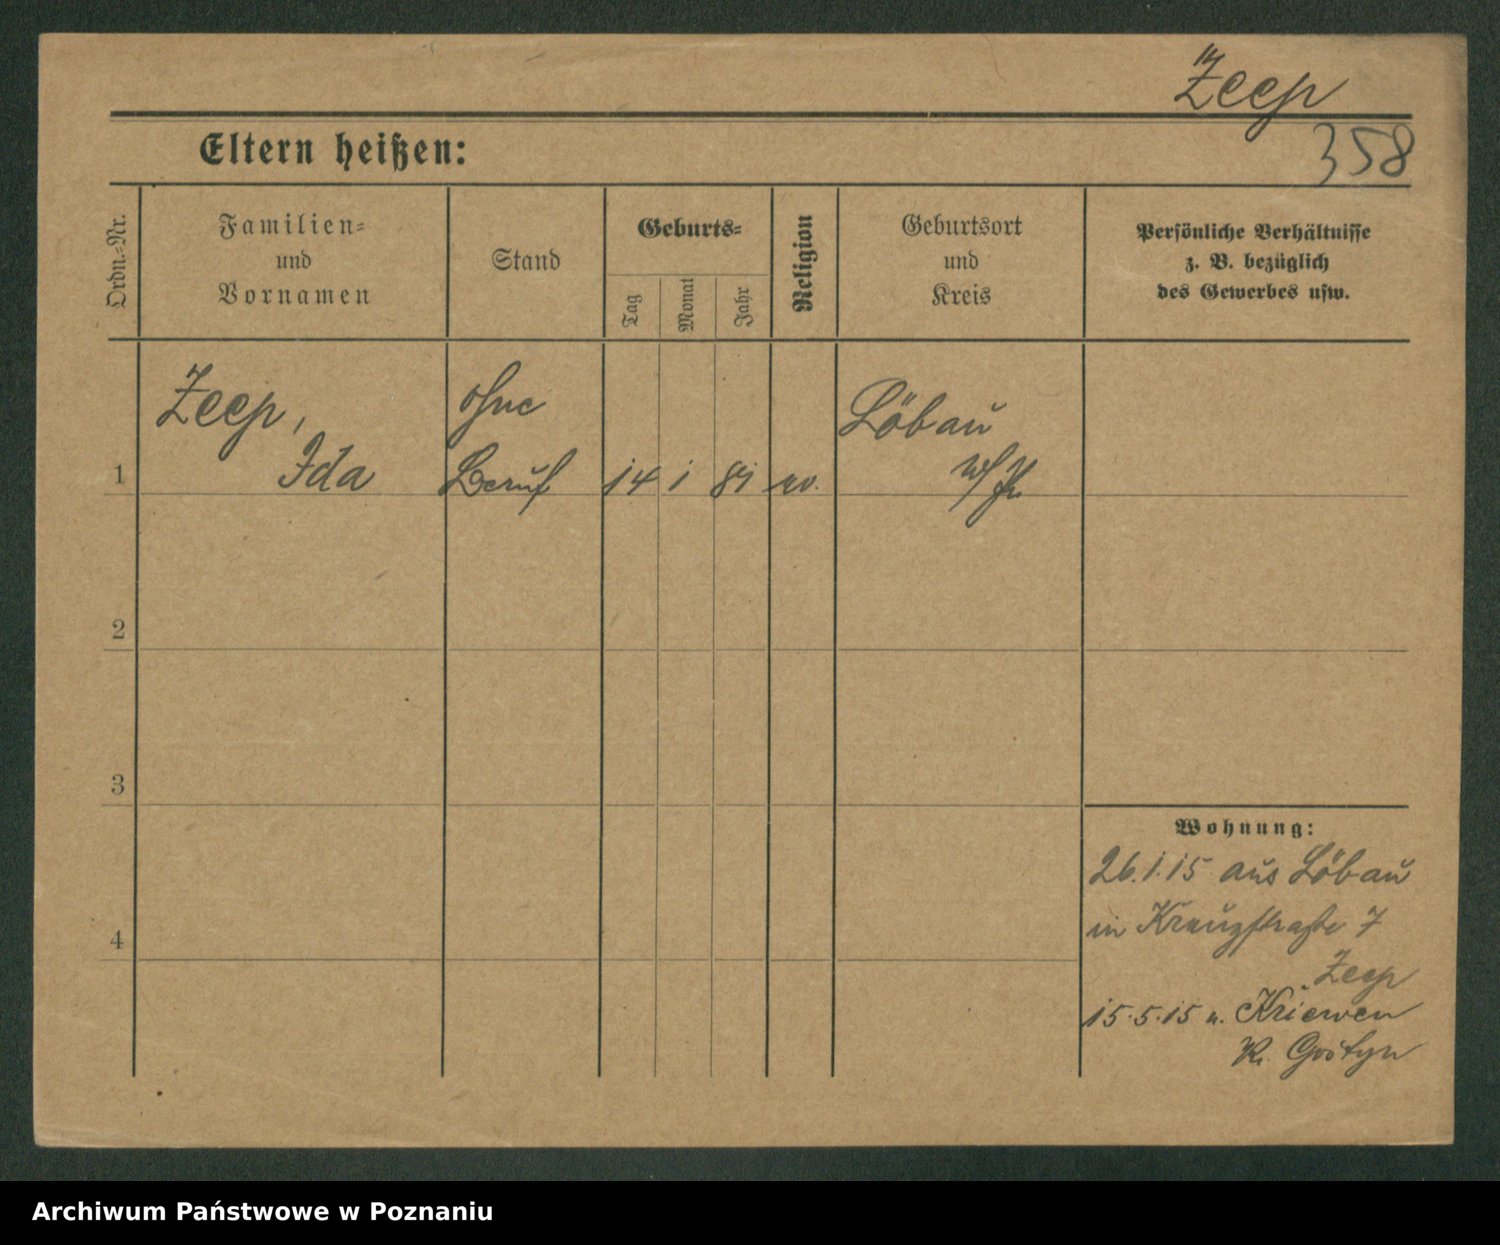 Zeep
358
Eltern heißen:
Ordn.-Nr.
Familien-
und
Vornamen
Stand
Geburts-
Tag
Monat
Jahr
Religion
Geburtsort
und
Kreis
Persönliche Verhältnisse
z. B. bezüglich
des Gewerbes usw.
1
Zeep,
Ida
ohne
Beruf
14
1
81
ev.
Löbau
W/Pr.
2
3
4
Wohnung:
26.1.15 aus Löbau
in Kreuzstraße 7
Zeep
15.5.15 n. Kriewen
Kr. Gostyn
Archiwum Państwowe w Poznaniu